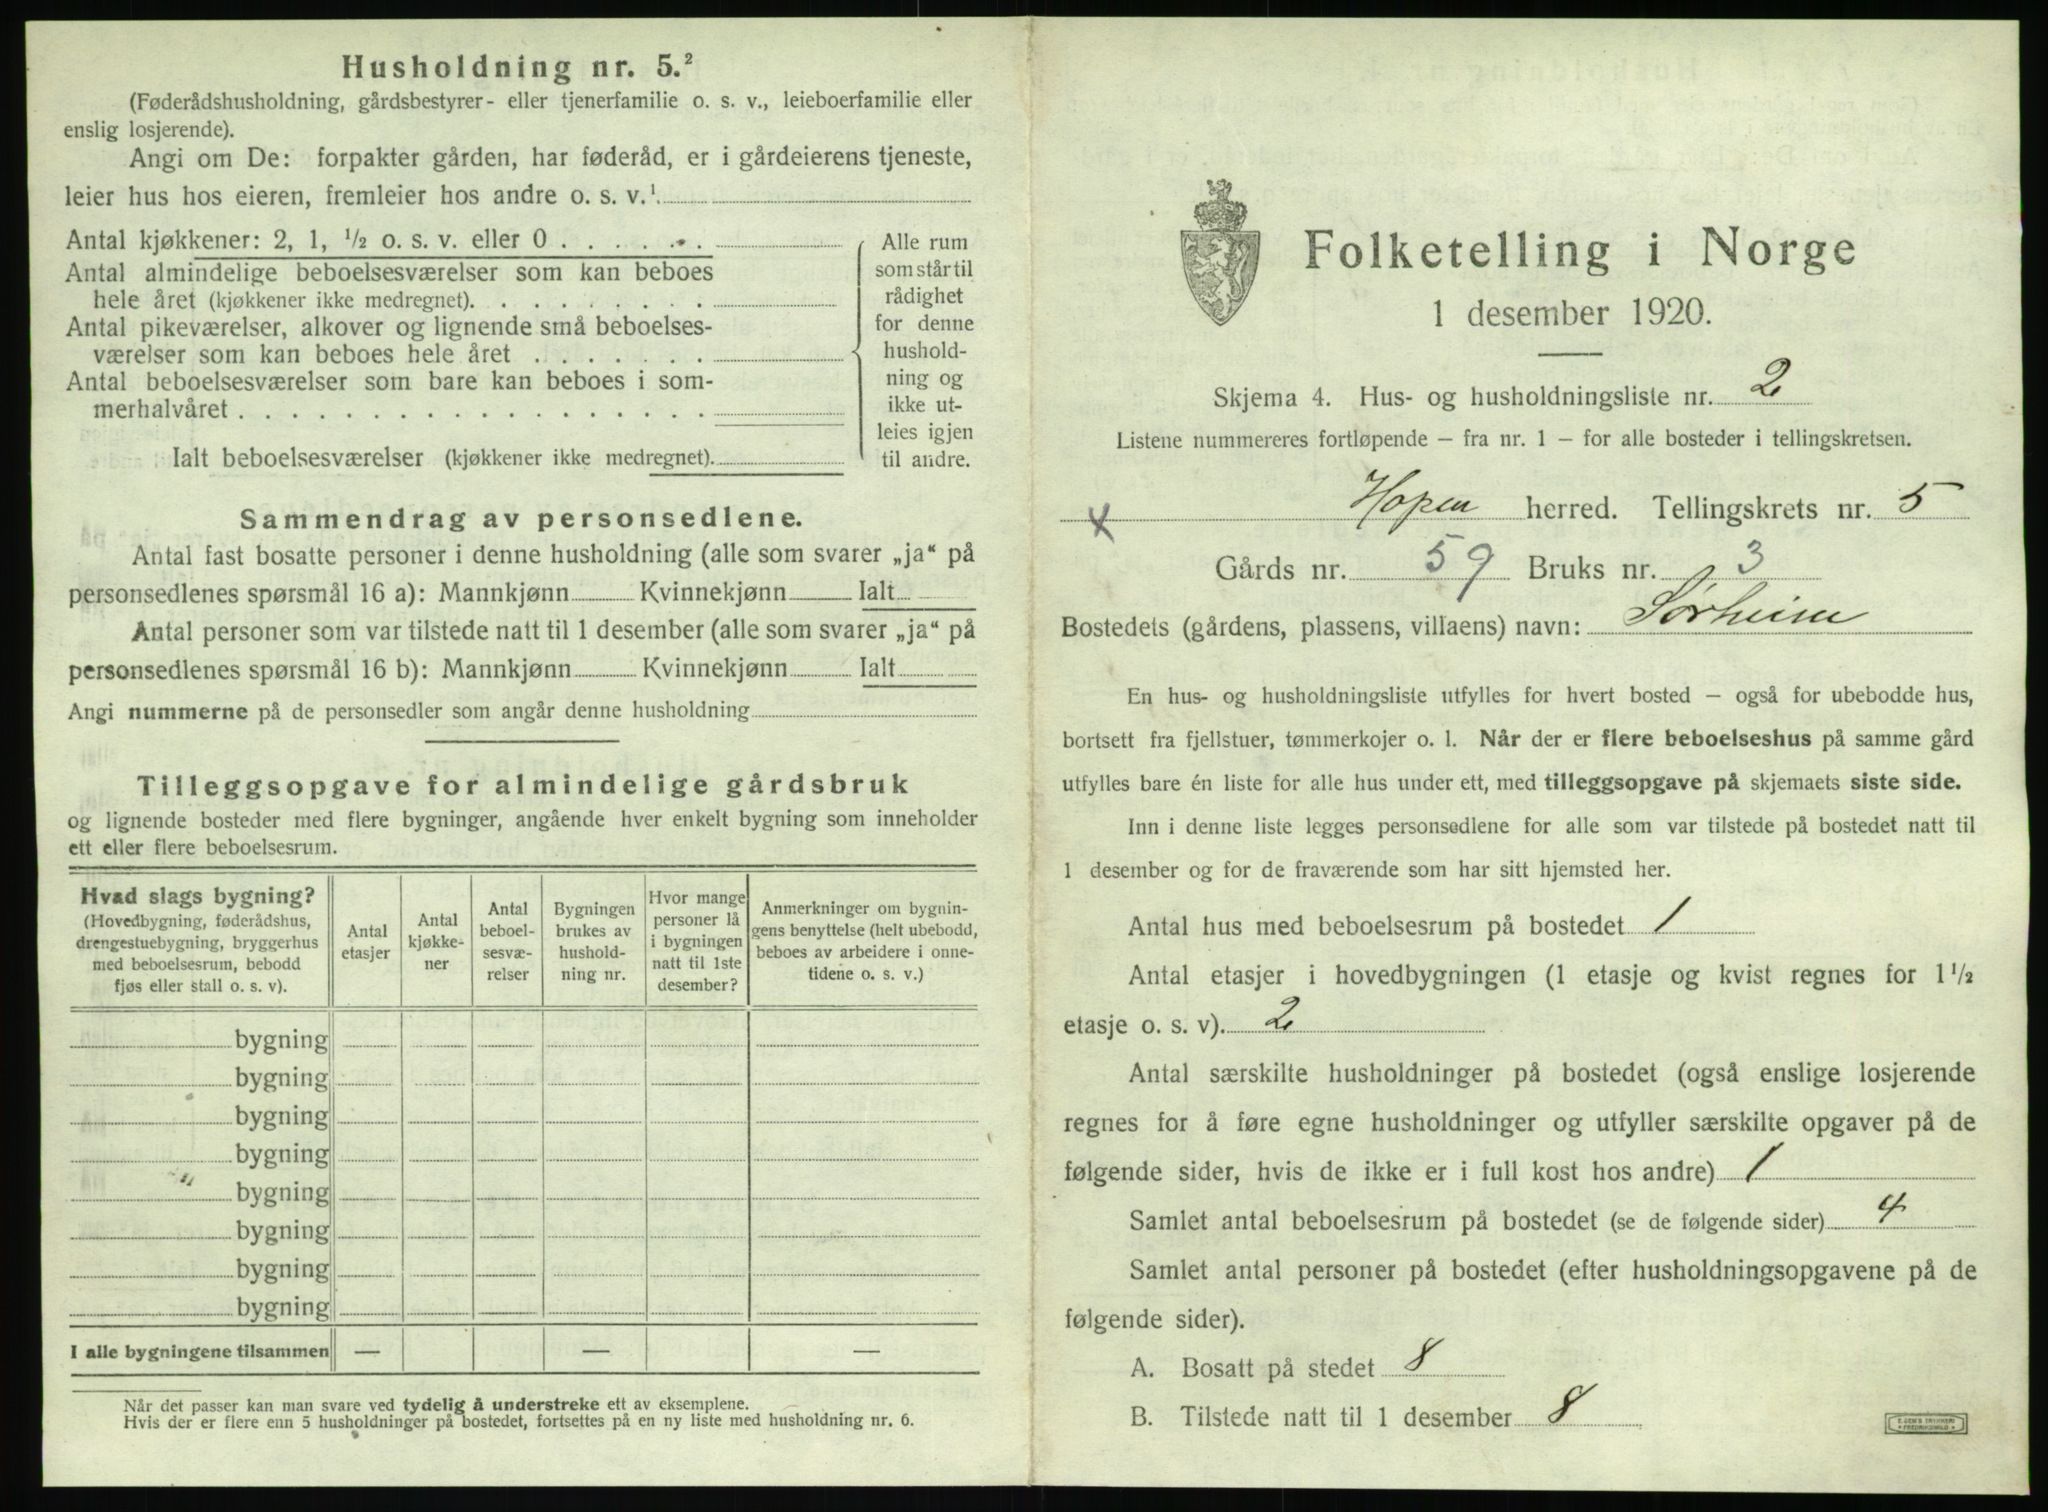 Husholdning nr. 5.²
(Føderådshusholdning, gårdsbestyrer- eller tjenerfamilie o. s. v., leieboerfamilie eller
enslig losjerende).
Angi om De: forpakter gården, har føderåd, er i gårdeierens tjeneste,
leier hus hos eieren, fremleier hos andre o. s. v.¹
Antal kjøkkener: 2, 1, ½ o. s. v. eller 0 . . . . . .
Antal almindelige beboelsesværelser som kan beboes
hele året (kjøkkener ikke medregnet). . . . . . . . .
Antal pikeværelser, alkover og lignende små beboelses-
værelser som kan beboes hele året . . . . . . .
Antal beboelsesværelser som bare kan beboes i som-
merhalvåret . . . . . . . . . . . . . . . . . .
Ialt beboelsesværelser (kjøkkener ikke medregnet).
Alle rum
som står til
rådighet
for denne
hushold-
ning og
ikke ut-
leies igjen
til andre.
Sammendrag av personsedlene.
Antal fast bosatte personer i denne husholdning (alle som svarer „ja“ på
personsedlenes spørsmål 16 a): Mannkjønn Kvinnekjønn Ialt
Antal personer som var tilstede natt til 1 desember (alle som svarer „ja“ på
personsedlenes spørsmål 16 b): Mannkjønn Kvinnekjønn Ialt
Angi nummerne på de personsedler som angår denne husholdning
Tilleggsopgave for almindelige gårdsbruk
og lignende bosteder med flere bygninger, angående hver enkelt bygning som inneholder
ett eller flere beboelsesrum.
Hvad slags bygning?
(Hovedbygning, føderådshus,
drengestuebygning, bryggerhus
med beboelsesrum, bebodd
fjøs eller stall o. s. v).
Antal
etasjer
Antal
kjøkke-
ner
Antal
beboel-
sesvæ-
relser
Bygningen
brukes av
hushold-
ning nr.
Hvor mange
personer lå
i bygningen
natt til 1ste
desember?
Anmerkninger om bygnin-
gens benyttelse (helt ubebodd,
beboes av arbeidere i onne-
tidene o. s. v.)
bygning
bygning
bygning
bygning
bygning
bygning
bygning
bygning
I alle bygningene tilsammen — — —
Når det passer kan man svare ved tydelig å understreke ett av eksemplene.
Hvis der er flere enn 5 husholdninger på bostedet, fortsettes på en ny liste med husholdning nr. 6.
Folketelling i Norge
1 desember 1920.
Skjema 4. Hus- og husholdningsliste nr. 2
Listene nummereres fortløpende – fra nr. 1 – for alle bosteder i tellingskretsen.
x Hopen herred. Tellingskrets nr. 5
Gårds nr. 59 Bruks nr. 3
Bostedets (gårdens, plassens, villaens) navn: Sørheim
En hus- og husholdningsliste utfylles for hvert bosted – også for ubebodde hus,
bortsett fra fjellstuer, tømmerkojer o. l. Når der er flere beboelseshus på samme gård
utfylles bare én liste for alle hus under ett, med tilleggsopgave på skjemaets siste side.
Inn i denne liste legges personsedlene for alle som var tilstede på bostedet natt til
1 desember og for de fraværende som har sitt hjemsted her.
Antal hus med beboelsesrum på bostedet 1
Antal etasjer i hovedbygningen (1 etasje og kvist regnes for 1½
etasje o. s. v). 2
Antal særskilte husholdninger på bostedet (også enslige losjerende
regnes for å føre egne husholdninger og utfyller særskilte opgaver på de
følgende sider, hvis de ikke er i full kost hos andre) 1
Samlet antal beboelsesrum på bostedet (se de følgende sider) 4
Samlet antal personer på bostedet (efter husholdningsopgavene på de
følgende sider).
A. Bosatt på stedet 8
B. Tilstede natt til 1 desember 8